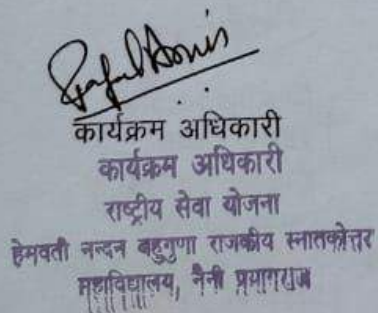 कार्यक्रम अधिकारी
कार्यक्रम अधिकारी
राष्ट्रीय सेवा योजना
हेमवती नन्दन बहुगुणा राजकीय स्नातकोत्तर
महाविद्यालय, नैनी प्रयागराज